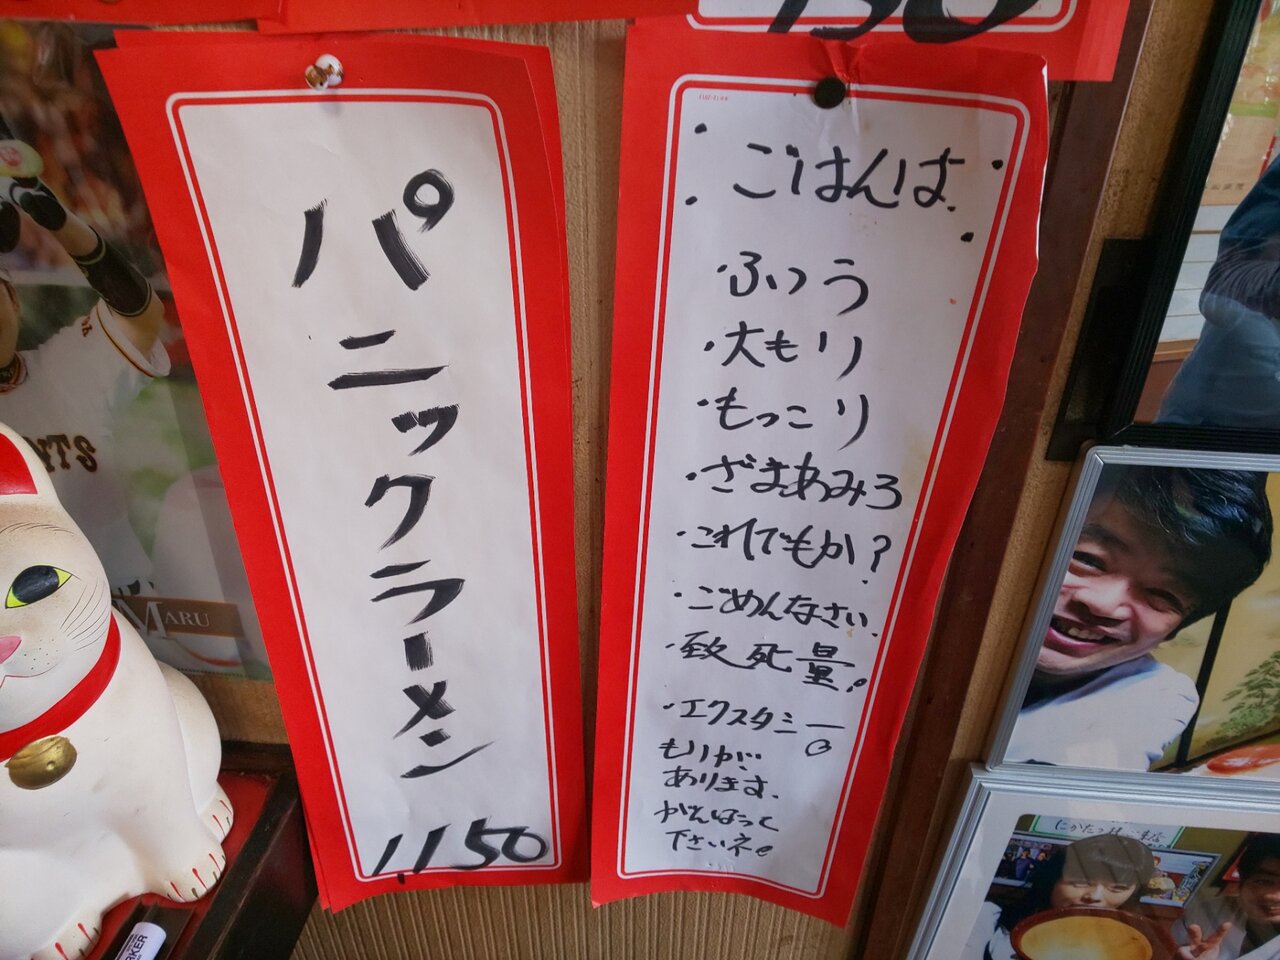 150
パニックラーメン
1,150
ごはんは
・ふつう
・大もり
・もっこり
・ざまあみろ
・これでもか?
・ごめんなさい
・致死量。
・エクスタシー
もりが
あります。
がんばって
下さいネ。
MARU